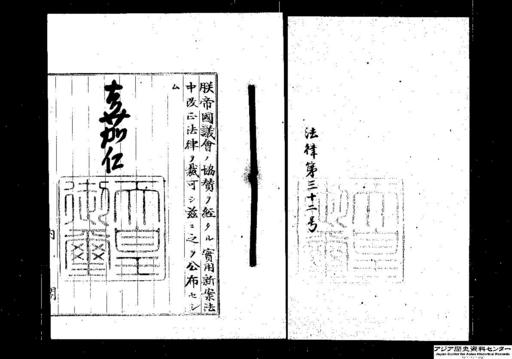 法律第三十二号
朕帝國議會ノ協賛ヲ經タル實用新案法
中改正法律ヲ裁可シ茲ニ之ヲ公布セシ
ム
嘉仁
天皇
御璽
内閣
アジア歴史資料センター
Japan Center for Asian Historical Records